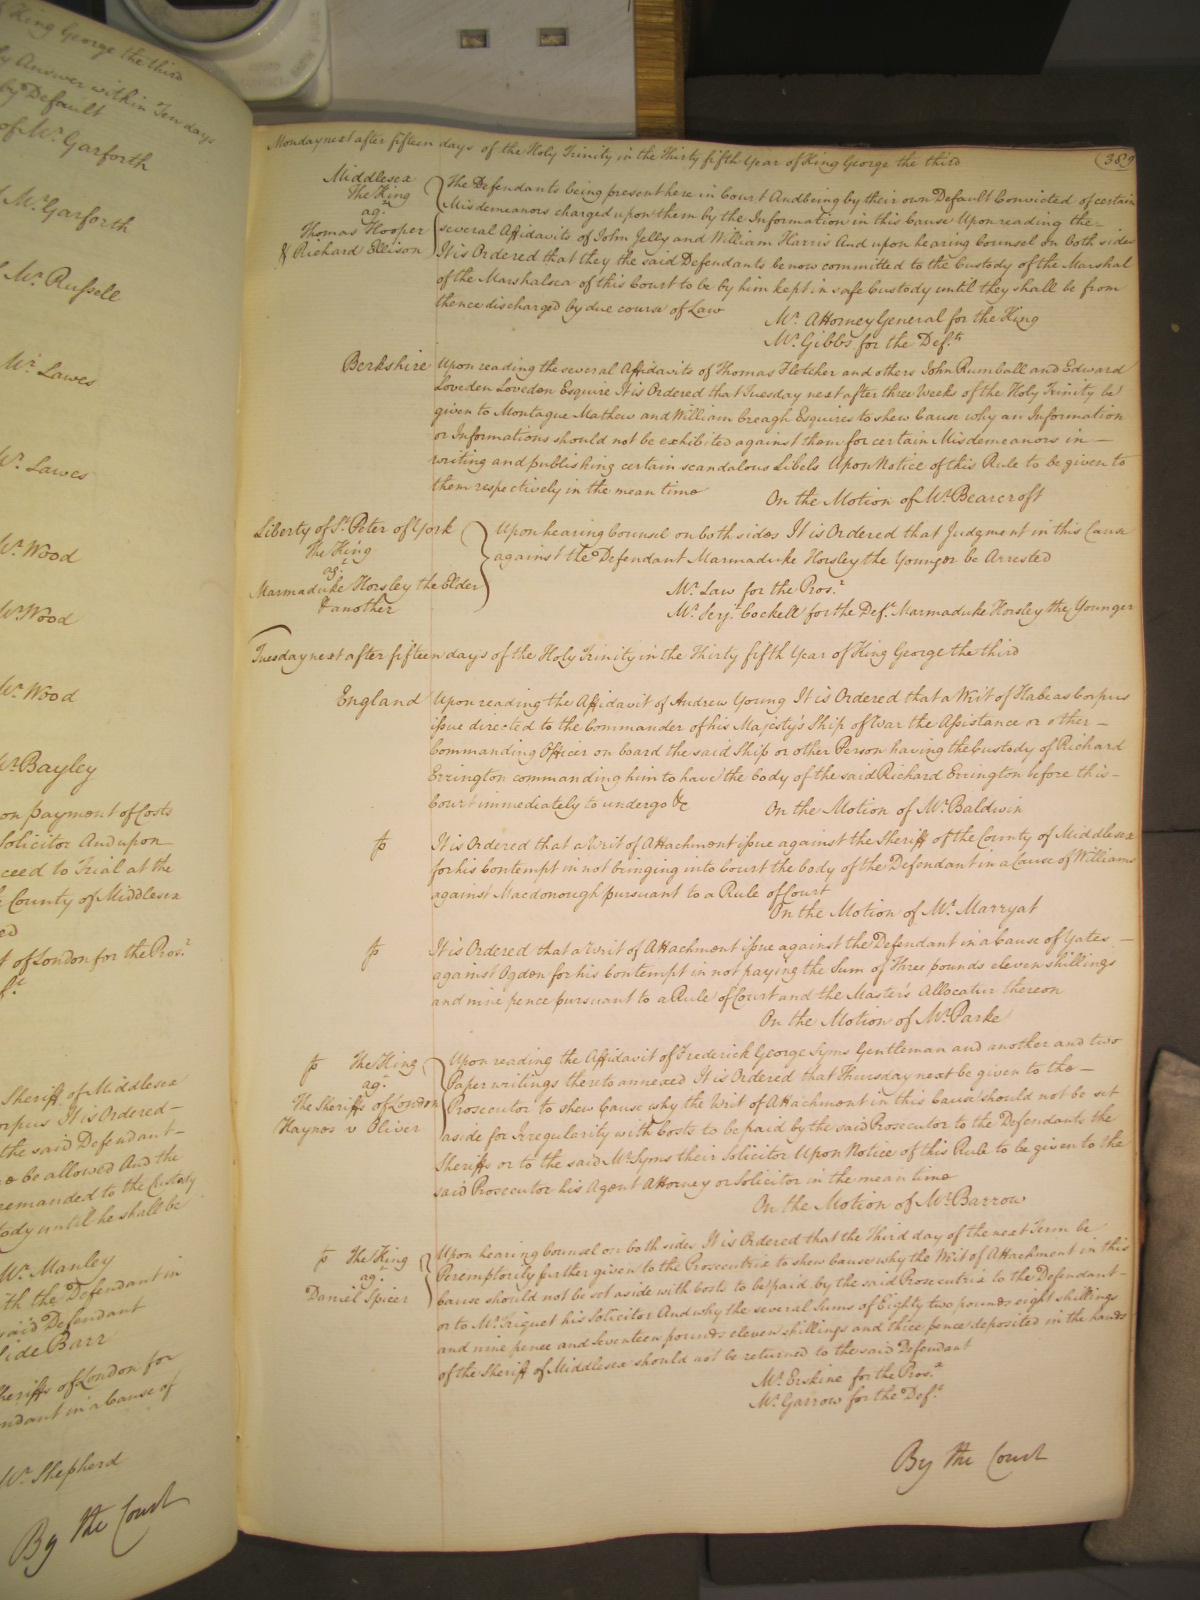 King George the third
ly Answer within Ten days
by Default
of Mr. Garforth
Mr. Garforth
Mr. Russell
Mr. Lawes
Mr. Lawes
Mr. Wood
Mr. Wood
Mr. Wood
Mr. Bayley
on payment of Costs
Solicitor And upon
ceed to Trial at the
County of Middlesex
ed
of London for the Prosr.
Sheriff of Middlesex
orpus It is Ordered
the said Defendant
be allowed And the
remanded to the Custody
ody until he shall be
Mr. Manley
ith the Defendant in
said Defendant
side Barr
Sheriffs of London for
ndant in a Cause of
Mr. Shepherd
By the Court
Monday next after fifteen days of the Holy Trinity in the Thirty fifth Year of King George the third
389
Middlesex
The King
agt.
Thomas Hooper
& Richard Ellison
The Defendants being present here in Court And being by their own Default Convicted of certain
Misdemeanors charged upon them by the Information in this Cause Upon reading the
several Affidavits of John Jelly and William Harris And upon hearing Counsel on both sides
It is Ordered that they the said Defendants be now committed to the Custody of the Marshal
of the Marshalsea of this Court to be by him kept in safe Custody until they shall be from
thence discharged by due course of Law
Mr. Attorney General for the King
Mr. Gibbs for the Defts.
Berkshire
Upon reading the several Affidavits of Thomas Fletcher and others John Rumball and Edward
Loveden Loveden Esquire It is Ordered that Tuesday next after three Weeks of the Holy Trinity be
given to Montague Mathew and William Creagh Esquires to shew Cause why an Information
or Informations should not be exhibited against them for certain Misdemeanors in
writing and publishing certain scandalous Libels Upon Notice of this Rule to be given to
them respectively in the mean time
On the Motion of Mr. Bearcroft
Liberty of St. Peter of York
The King
agt.
Marmaduke Horsley the Elder
& another
Upon hearing Counsel on both sides It is Ordered that Judgment in this Cause
against the Defendant Marmaduke Horsley the Younger be Arrested
Mr. Law for the Prosr.
Mr. Serjt. Cockell for the Deft. Marmaduke Horsley the Younger
Tuesday next after fifteen days of the Holy Trinity in the Thirty fifth Year of King George the third
England
Upon reading the Affidavit of Andrew Young It is Ordered that a Writ of Habeas Corpus
issue directed to the Commander of his Majesty's Ship of War the Assistance or other
Commanding Officer on board the said Ship or other Person having the Custody of Richard
Errington commanding him to have the body of the said Richard Errington before this
Court immediately to undergo &c
On the Motion of Mr. Baldwin
It is Ordered that a Writ of Attachment issue against the Sheriff of the County of Middlesex
for his Contempt in not bringing into Court the body of the Defendant in a Cause of Williams
against Macdonough pursuant to a Rule of Court
On the Motion of Mr. Marryat
It is Ordered that a Writ of Attachment issue against the Defendant in a Cause of Yates
against Ogden for his Contempt in not paying the Sum of Three pounds eleven shillings
and nine pence pursuant to a Rule of Court and the Master's Allocatur thereon
On the Motion of Mr. Parke
The King
agt.
The Sheriffs of London
Haynes v Oliver
Upon reading the Affidavit of Frederick George Syms Gentleman and another and two
Paper writings thereto annexed It is Ordered that Thursday next be given to the
Prosecutor to shew Cause why the Writ of Attachment in this Cause should not be set
aside for Irregularity with Costs to be paid by the said Prosecutor to the Defendants the
Sheriffs or to the said Mr. Syms their Solicitor Upon Notice of this Rule to be given to the
said Prosecutor his Agent Attorney or Solicitor in the mean time
On the Motion of Mr. Barrow
The King
agt.
Daniel Spicer
Upon hearing Counsel on both sides It is Ordered that the Third day of the next Term be
Peremptorily further given to the Prosecutrix to shew Cause why the Writ of Attachment in this
Cause should not be set aside with Costs to be paid by the said Prosecutrix to the Defendant
or to Mr. Triquet his Solicitor And why the several Sums of Eighty two pounds eight shillings
and nine pence and Seventeen pounds eleven shillings and three pence deposited in the hands
of the Sheriff of Middlesex should not be returned to the said Defendant
Mr. Erskine for the Prosx.
Mr. Garrow for the Deft.
By the Court